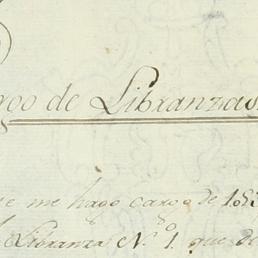 rgo de Libranzas
e me hago cargo de 185
Libranza N.º 1. que de